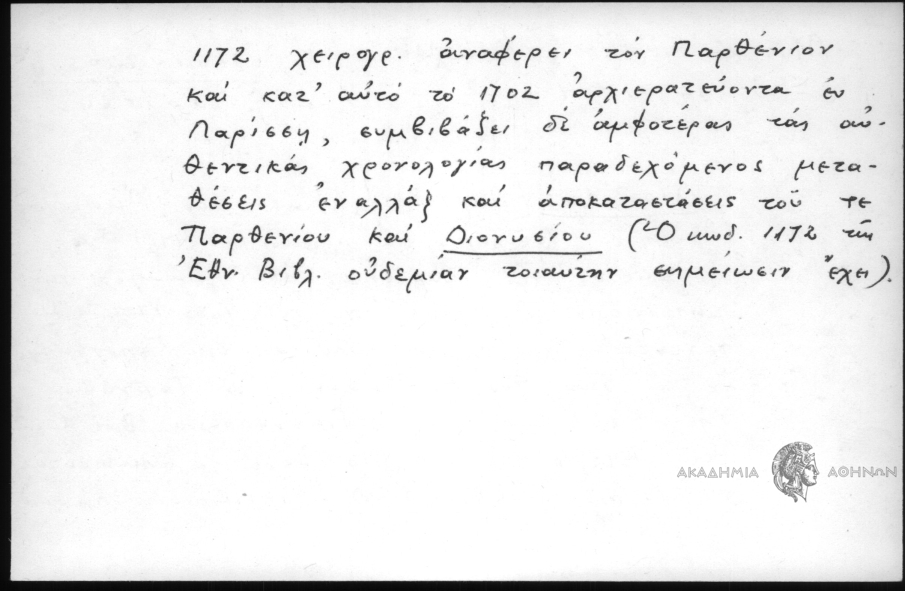 1172 χειρογρ. ἀναφέρει τόν Παρθένιον
καί κατ' αὐτό τό 1702 ἀρχιερατεύοντα ἐν
Λαρίσσῃ, συμβιβάζει δέ ἀμφοτέρας τάς αὐ-
θεντικάς χρονολογίας παραδεχόμενος μετα-
θέσεις ἐναλλάξ καί ἀποκαταστάσεις τοῦ τε
Παρθενίου καί Διονυσίου (Ὁ κωδ. 1172 τῆς
Ἐθν. Βιβλ. οὐδεμίαν τοιαύτην σημείωσιν ἔχει).
ΑΚΑΔΗΜΙΑ ΑΘΗΝΩΝ